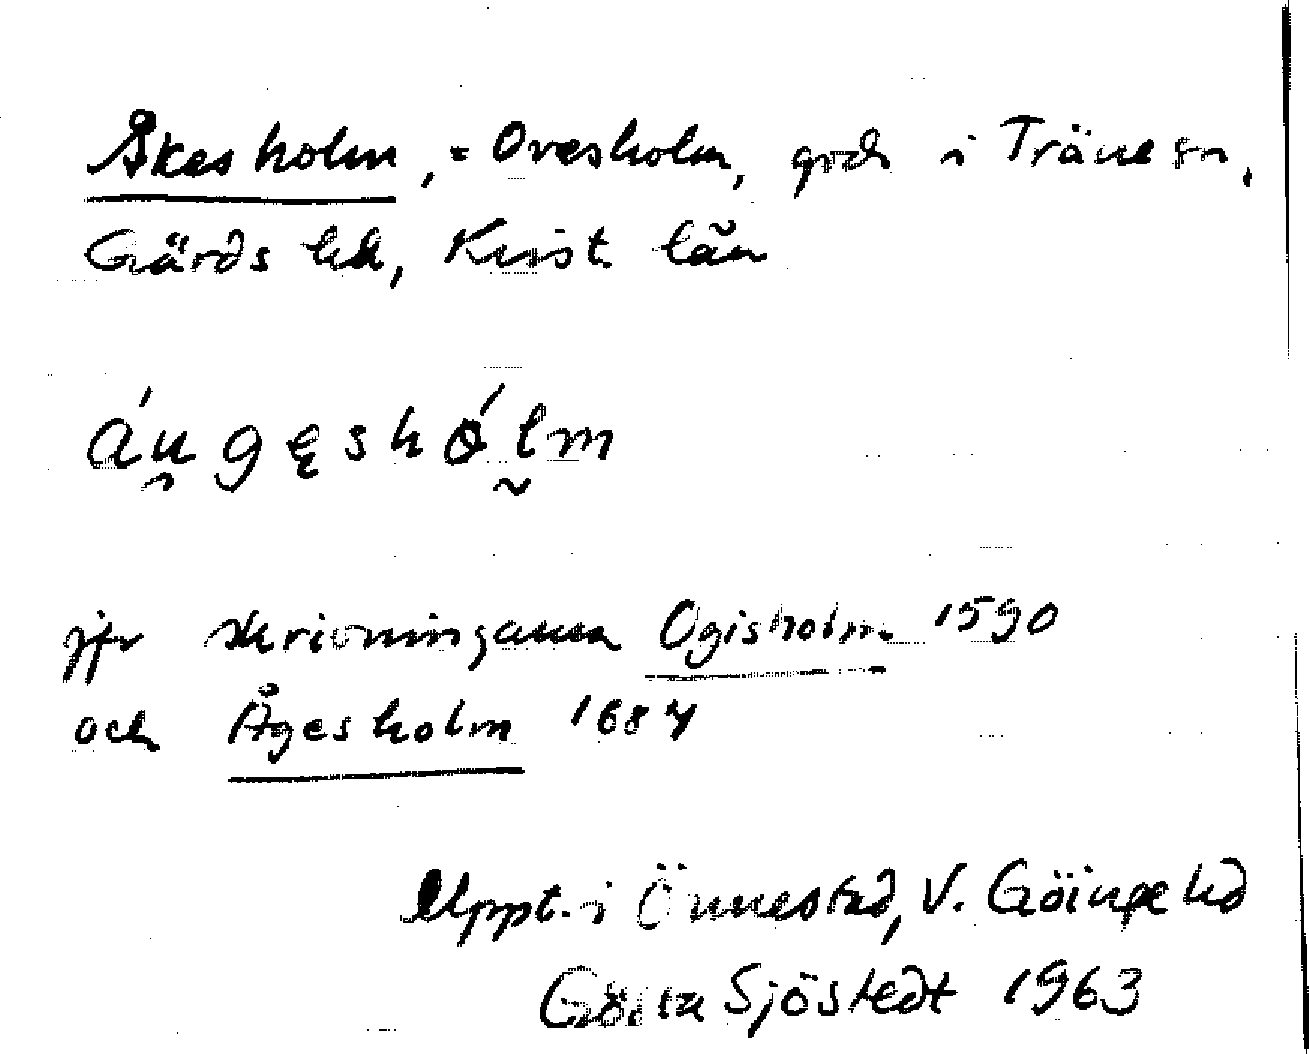 Åkesholm, = Ovesholm, gods i Träne sn,
Gärds hd, Krist. län
áu̯gęshól̰m
jfr skrivningarna Ogisholm 1590
och Ågesholm 1684
Uppt. i Önnestad, V. Göinge hd
Gösta Sjöstedt 1963